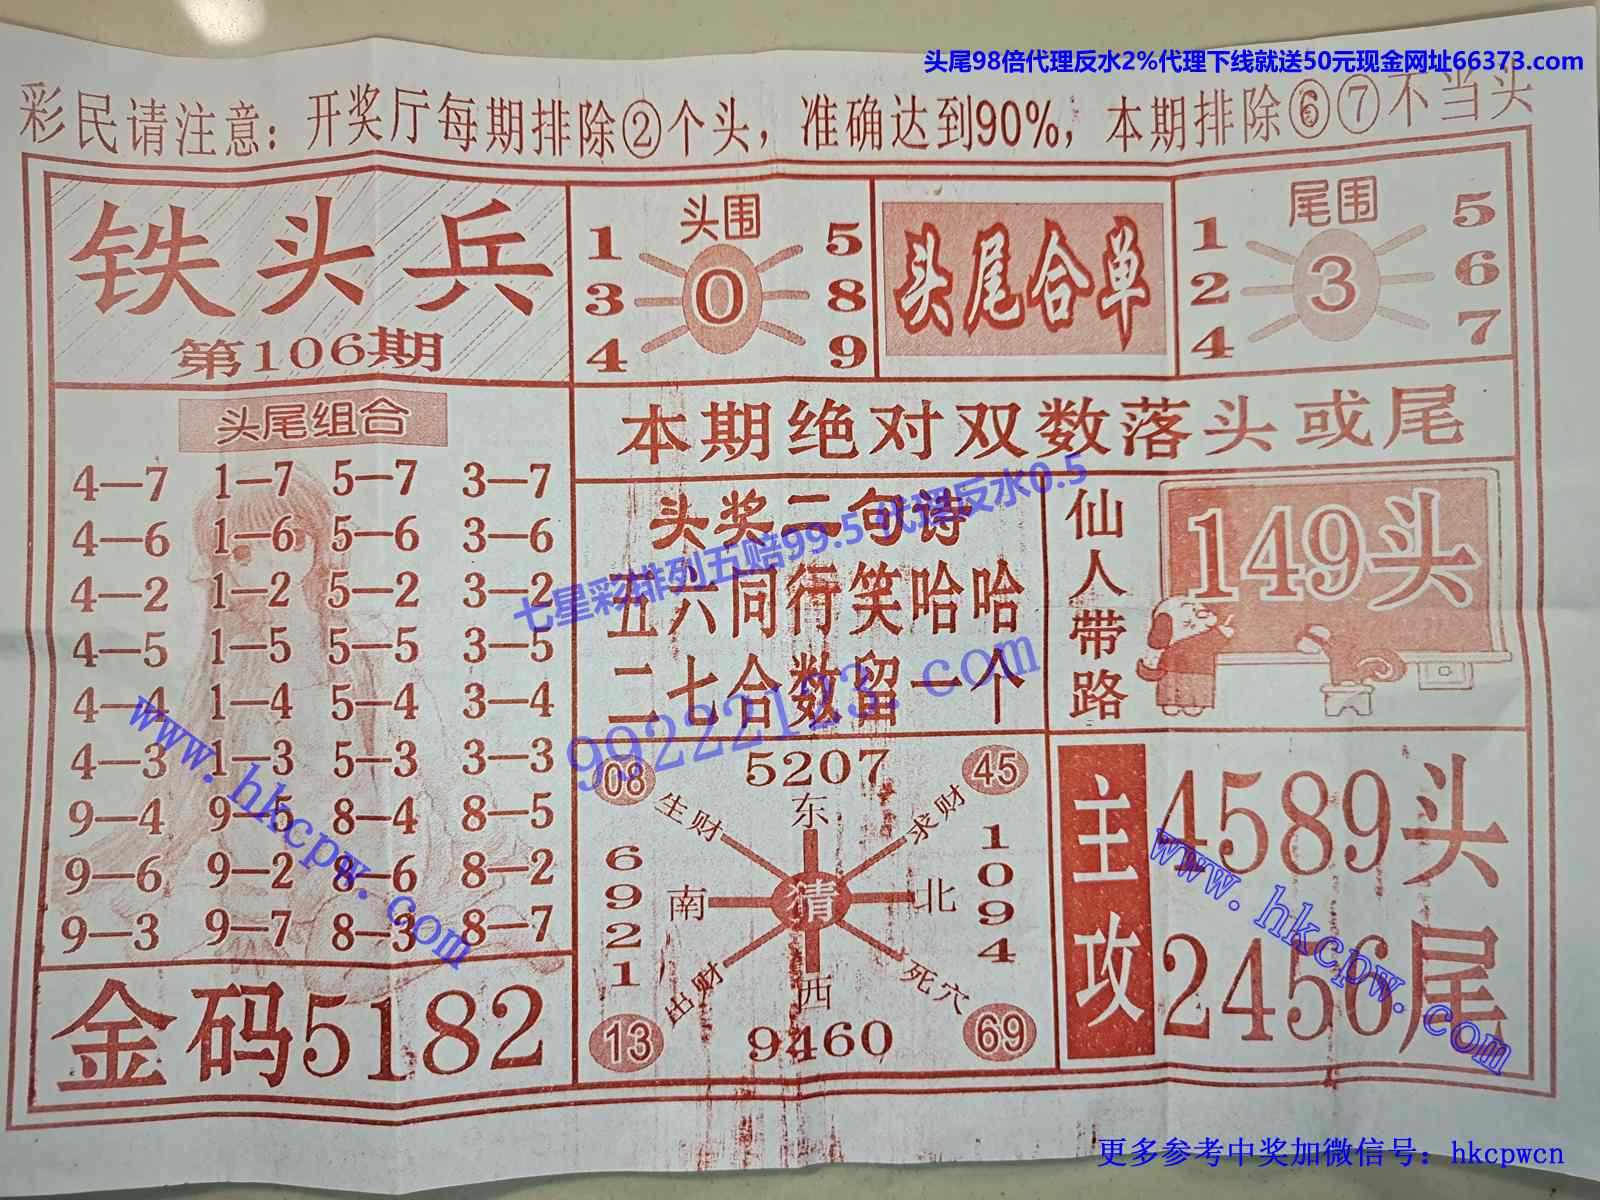 头尾98倍代理反水2%代理下线就送50元现金网址66373.com
彩民请注意：开奖厅每期排除②个头，准确达到90%，本期排除⑥⑦不当头
铁头兵
第106期
头围
1 3 4
0
5 8 9
头尾合单
尾围
1 2 4
3
5 6 7
本期绝对双数落头或尾
头尾组合
4—7 1—7 5—7 3—7
4—6 1—6 5—6 3—6
4—2 1—2 5—2 3—2
4—5 1—5 5—5 3—5
4—4 1—4 5—4 3—4
4—3 1—3 5—3 3—3
9—4 9—5 8—4 8—5
9—6 9—2 8—6 8—2
9—3 9—7 8—3 8—7
金码5182
头奖二句诗
五六同行笑哈哈
二七合数留一个
七星彩排列五赔99.5 代理反水0.5
99222123.com
仙人带路
149头
08 5207 45
生财 东 求财
6921 南 猜 北 1094
出财 西 死穴
13 9460 69
主攻
4589头
2456尾
www.hkcpw.com
www.hkcpw.com
更多参考中奖加微信号：hkcpwcn